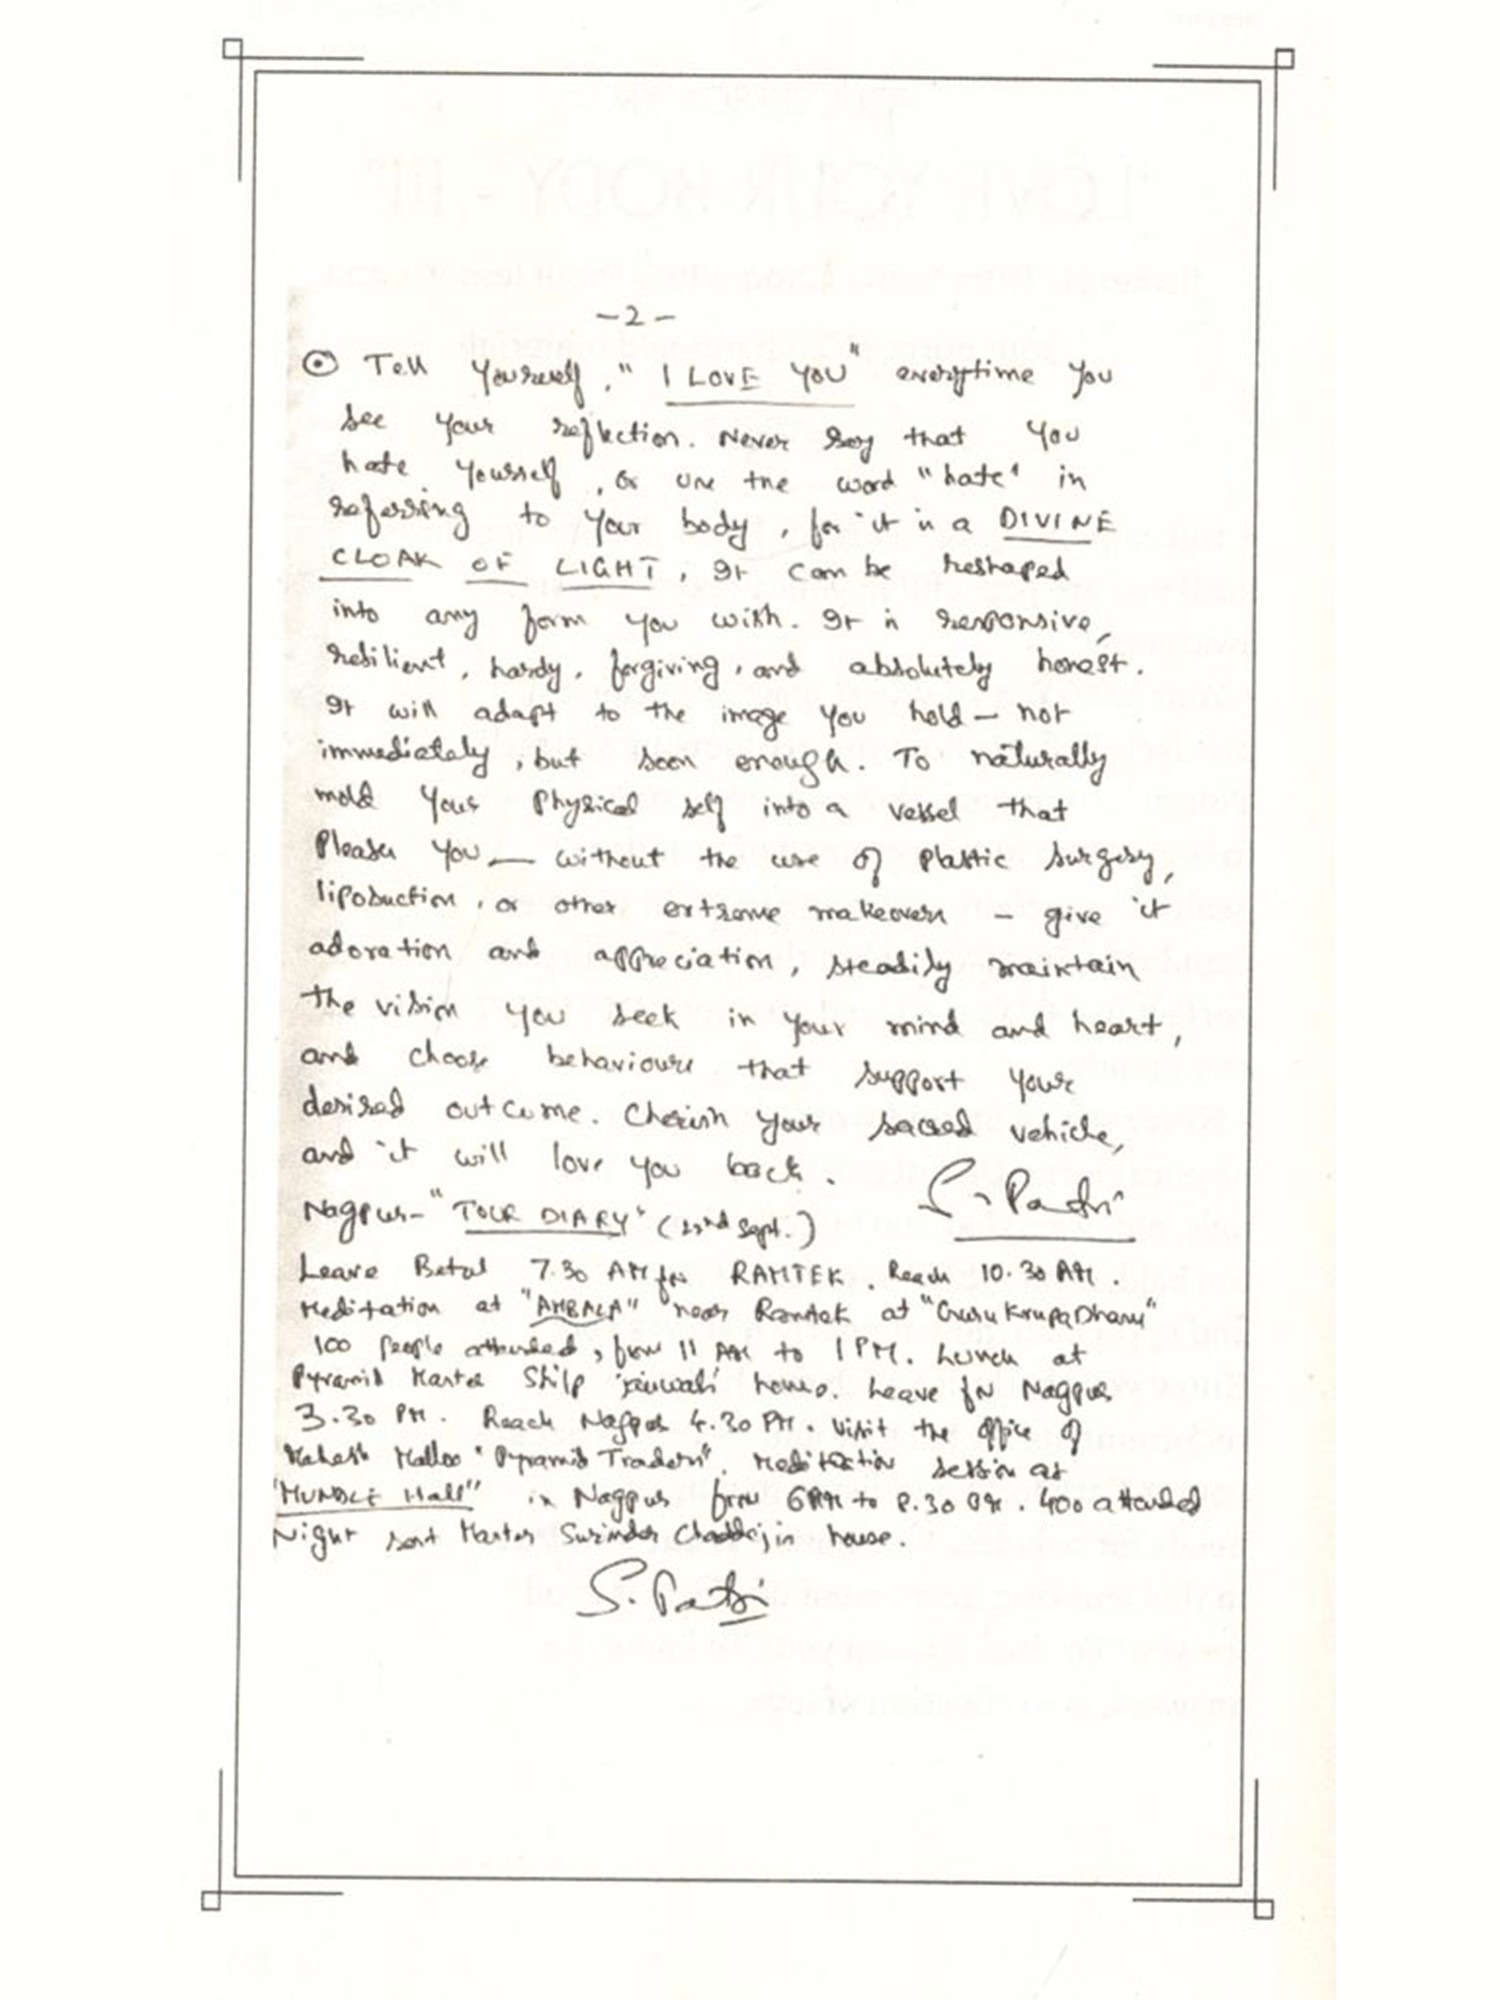 -2-
⊙ Tell yourself, "I LOVE YOU" everytime you
see your reflection. Never say that you
hate yourself, or use the word "hate" in
referring to your body, for it is a DIVINE
CLOAK OF LIGHT, It can be reshaped
into any form you wish. It is responsive,
resilient, hardy, forgiving, and absolutely honest.
It will adapt to the image you hold — not
immediately, but soon enough. To naturally
mold your physical self into a vessel that
pleases you — without the use of plastic surgery,
liposuction, or other extreme makeovers — give it
adoration and appreciation, steadily maintain
the vision you seek in your mind and heart,
and choose behaviours that support your
desired outcome. Cherish your sacred vehicle,
and it will love you back. S. Patri
Nagpur - "TOUR DIARY" (22nd Sept.)
Leave Betul 7.30 AM for RAMTEK. Reach 10.30 AM.
Meditation at "AMBALA" near Ramtek at "Guru Krupa Dham"
100 people attended, from 11 AM to 1 PM. Lunch at
Pyramid Master Shilp house. Leave for Nagpur
3.30 PM. Reach Nagpur 4.30 PM. Visit the office of
Mahesh "Pyramid Traders". Meditation session at
"MUNDLE Hall" in Nagpur from 6 PM to 8.30 PM. 400 attended
Night Master Surinder in house.
S. Patri
LOVE YOUR BODY - III"